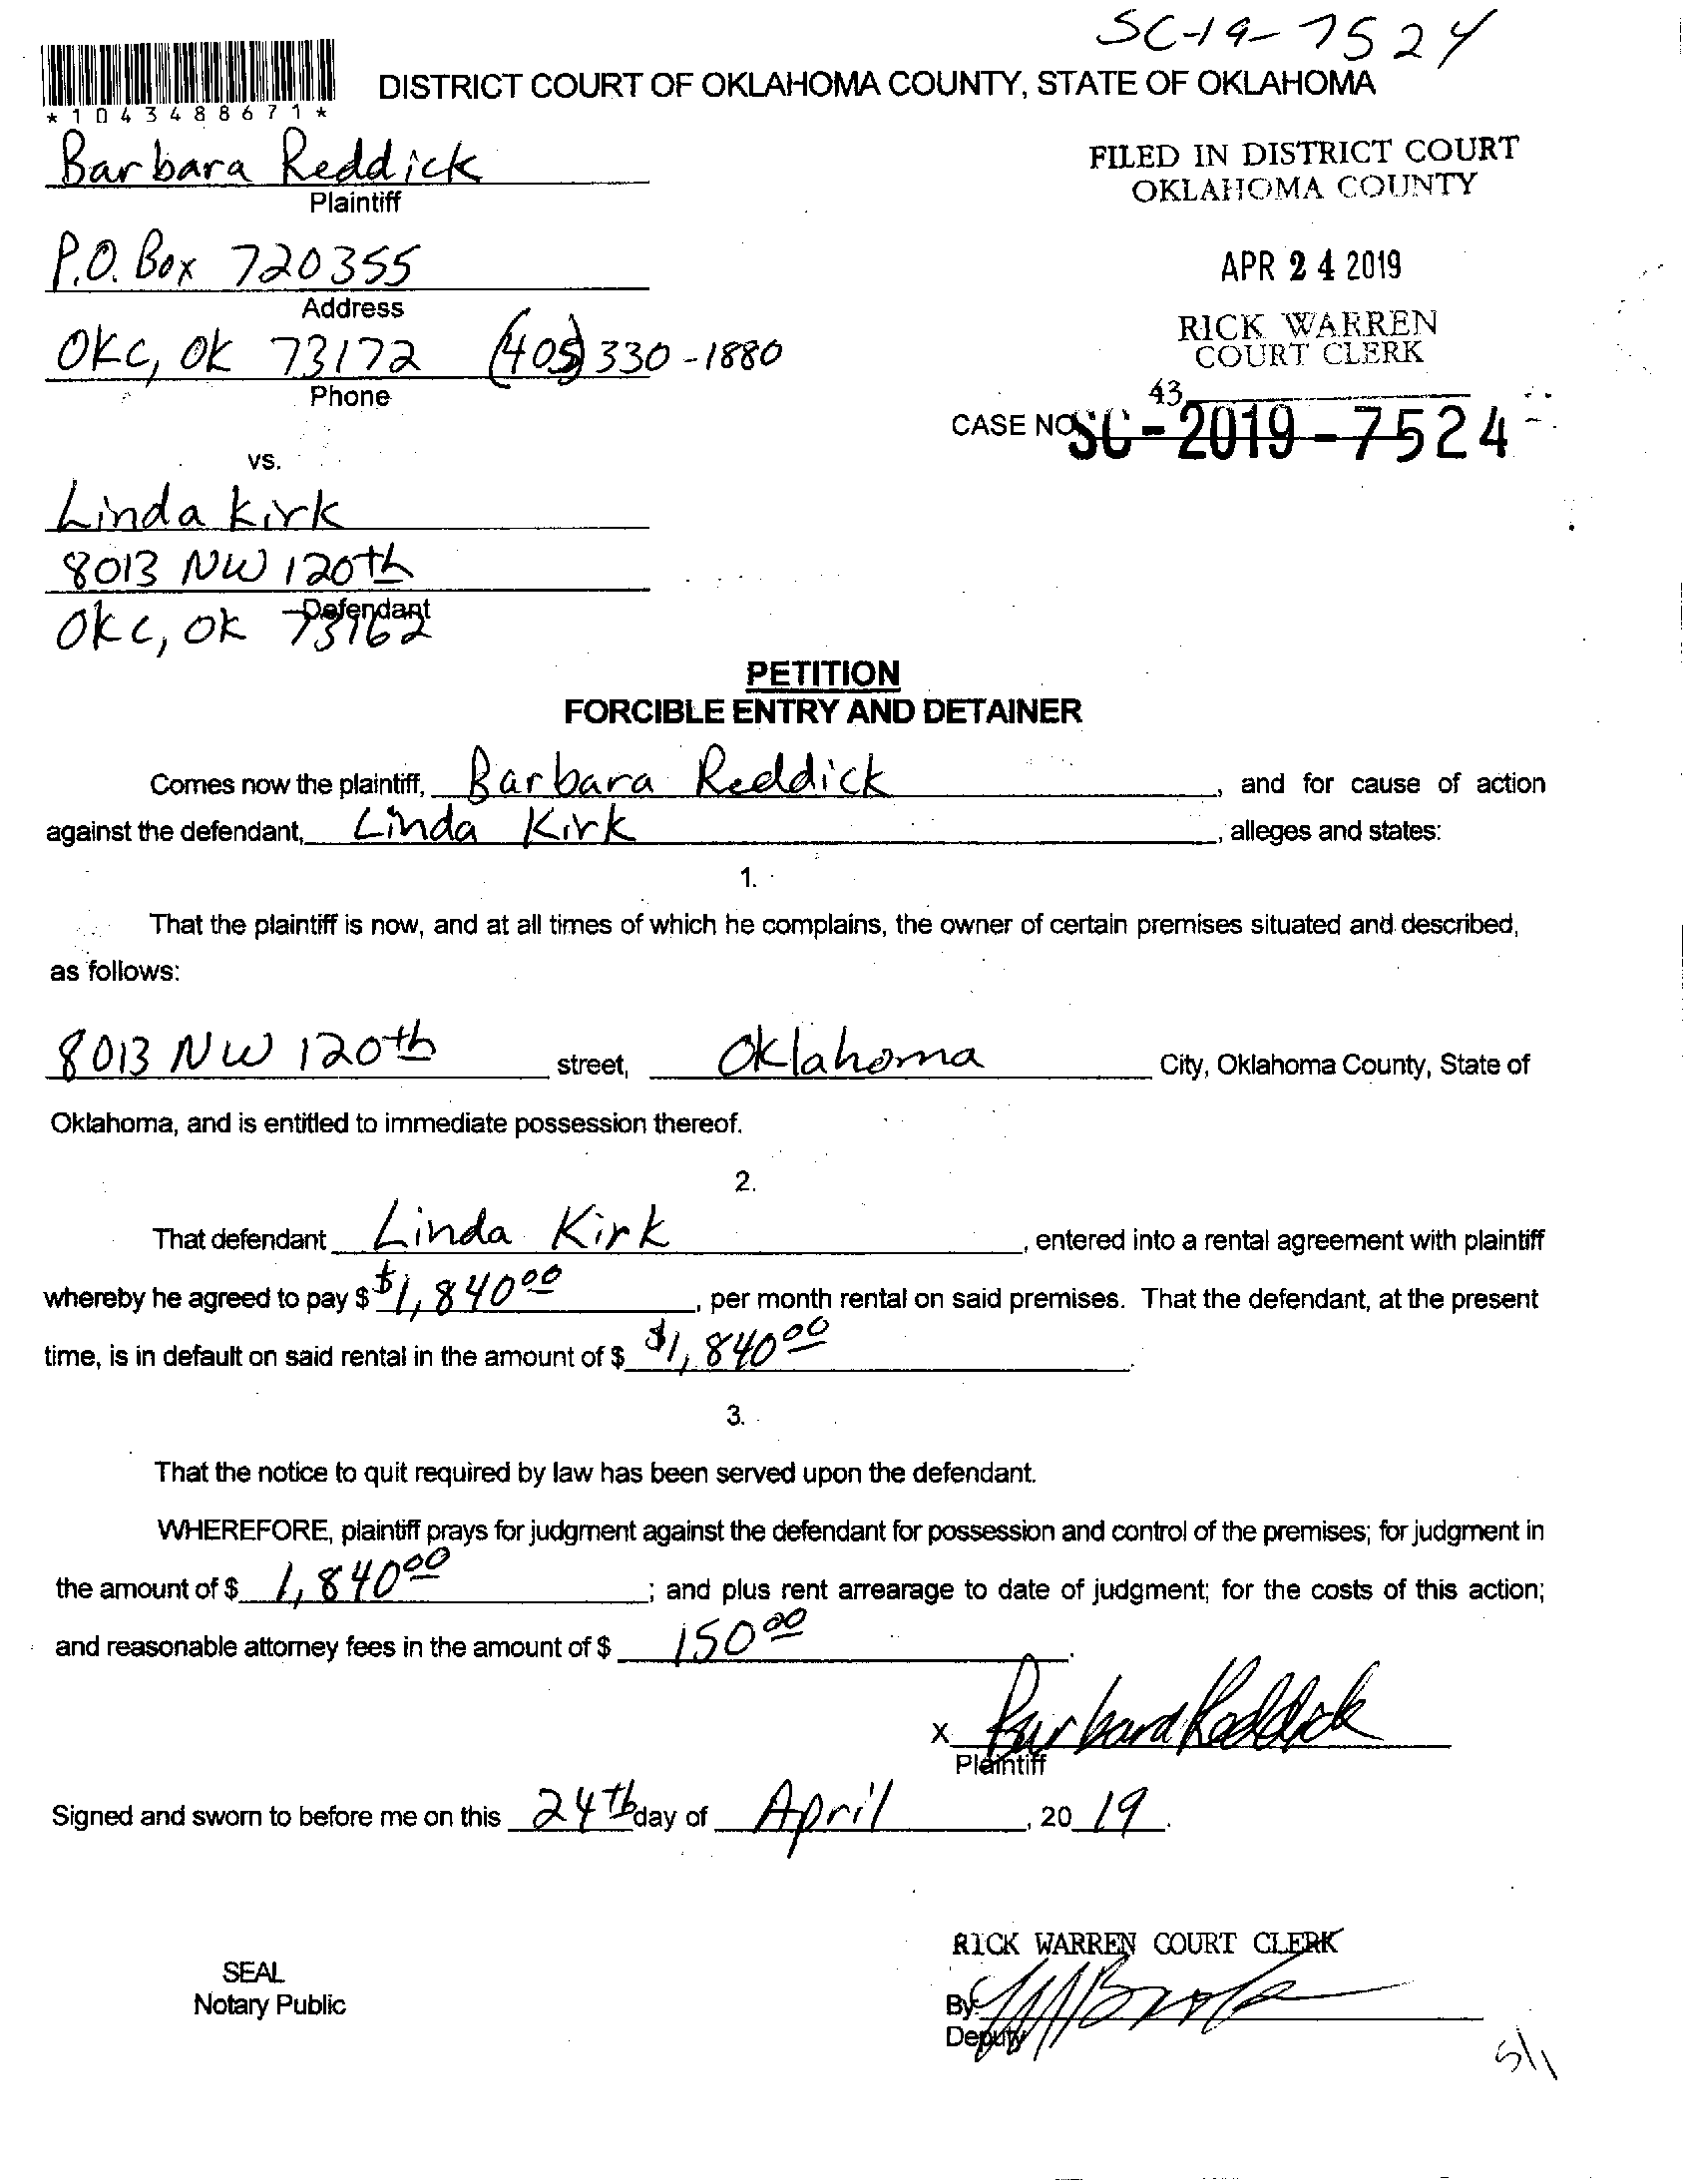 SC-19-7524
*1043488671*
DISTRICT COURT OF OKLAHOMA COUNTY, STATE OF OKLAHOMA
Barbara Reddick
Plaintiff
FILED IN DISTRICT COURT
OKLAHOMA COUNTY
P.O. Box 720355
Address
APR 24 2019
OKC, OK 73172 (405) 330-1880
Phone
RICK WARREN
COURT CLERK
43
CASE NO. SC-2019-7524
vs.
Linda Kirk
8013 NW 120th
Defendant
OKC, OK 73162
PETITION
FORCIBLE ENTRY AND DETAINER
Comes now the plaintiff, Barbara Reddick, and for cause of action
against the defendant, Linda Kirk, alleges and states:
1.
That the plaintiff is now, and at all times of which he complains, the owner of certain premises situated and described,
as follows:
8013 NW 120th street, Oklahoma City, Oklahoma County, State of
Oklahoma, and is entitled to immediate possession thereof.
2.
That defendant Linda Kirk, entered into a rental agreement with plaintiff
whereby he agreed to pay $ $1,840 00, per month rental on said premises. That the defendant, at the present
time, is in default on said rental in the amount of $ $1,840 00.
3.
That the notice to quit required by law has been served upon the defendant.
WHEREFORE, plaintiff prays for judgment against the defendant for possession and control of the premises; for judgment in
the amount of $ 1,840 00; and plus rent arrearage to date of judgment; for the costs of this action;
and reasonable attorney fees in the amount of $ 150 00.
X Barbara Reddick
Plaintiff
Signed and sworn to before me on this 24th day of April, 20 19.
RICK WARREN COURT CLERK
SEAL
Notary Public
By:
Deputy
5/1